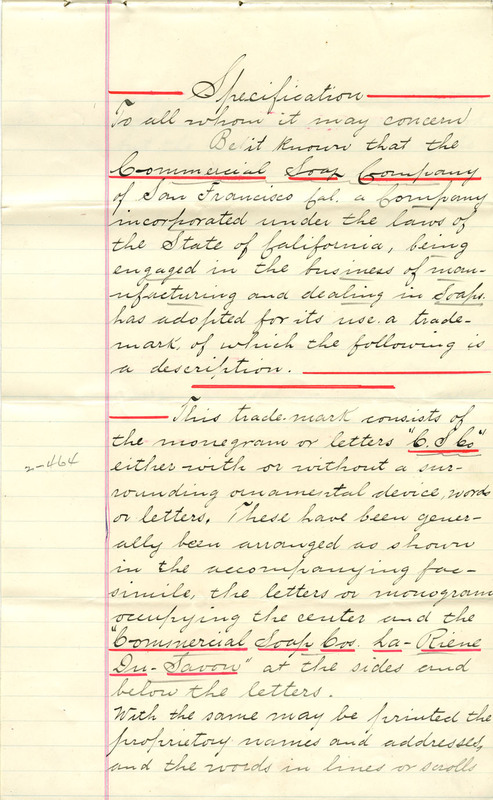 Specification
To all whom it may concern
Be it known that the
Commercial Soap Company
of San Francisco Cal. a Company
incorporated under the laws of
the State of California, being
engaged in the business of man-
ufacturing and dealing in Soaps.
has adopted for its use a trade-
mark, of which the following is
a description.
This trade-mark consists of
the monogram or letters "C. S. Co"
2-464
either with or without a sur-
rounding ornamental device, words
or letters. These have been gener-
ally been arranged as shown
in the accompanying fac-
simile, the letters or monogram
occupying the center and the
"Commercial Soap Cos. La-Riene
Du-Savon" at the sides and
below the letters.
With the same may be printed the
proprietory names and addresses,
and the words in lines or scrolls